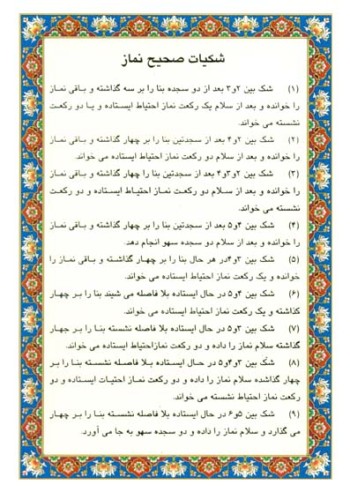 شکیات صحیح نماز
(۱) شک بین ۲و۳ بعد از دو سجده بنا را بر سه گذاشته و باقی نماز
را خوانده و بعد از سلام یک رکعت نماز احتیاط ایستاده و یا دو رکعت
نشسته می خواند.
(۲) شک بین ۲و۴ بعد از سجدتین بنا را بر چهار گذاشته و باقی نماز
را خوانده و بعد از سلام دو رکعت نماز احتیاط ایستاده می خواند.
(۳) شک بین ۲و۳و۴ بعد از سجدتین بنا را چهار گذاشته و باقی نماز
را خوانده و بعد از سلام دو رکعت نماز احتیاط ایستاده و دو رکعت
نشسته می خواند.
(۴) شک بین ۴و۵ بعد از سجدتین بنا را بر چهار گذاشته و باقی نماز
را خوانده و بعد از سلام دو سجده سهو انجام دهد.
(۵) شک بین ۳و۴در هر حال بنا را بر چهار گذاشته و باقی نماز را
خوانده و یک رکعت نماز احتیاط ایستاده می خواند.
(۶) شک بین ۴و۵ در حال ایستاده بلا فاصله می شیند بنا را بر چهار
گذاشته و یک رکعت نماز احتیاط ایستاده می خواند.
(۷) شک بین ۳و۵ در حال ایستاده بلا فاصله نشسته بنا را بر چهار
گذاشته سلام نماز را داده و دو رکعت نمازاحتیاط ایستاده می خواند.
(۸) شک بین ۳و۴و۵ در حال ایستاده بلا فاصله نشسته بنا را بر
چهار گذاشده سلام نماز را داده و دو رکعت نماز احتیات ایستاده و دو
رکعت نماز احتیاط نشسته می خواند.
(۹) شک بین ۵و۶ در حال ایستاده بلا فاصله نشسته بنا را بر چهار
می گذارد و سلام نماز را داده و دو سجده سهو به جا می آورد.